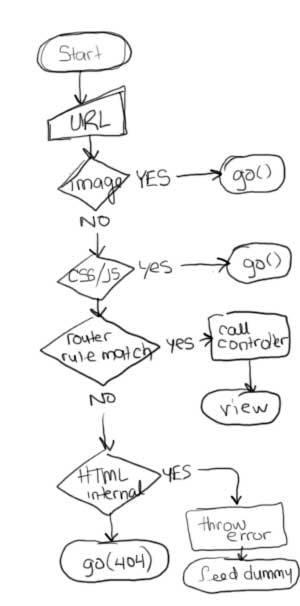 Start
URL
image
YES
go()
NO
CSS/JS
yes
go()
router
rule match
yes
call
controler
NO
view
HTML
internal
YES
throw
error
go(404)
feed dummy